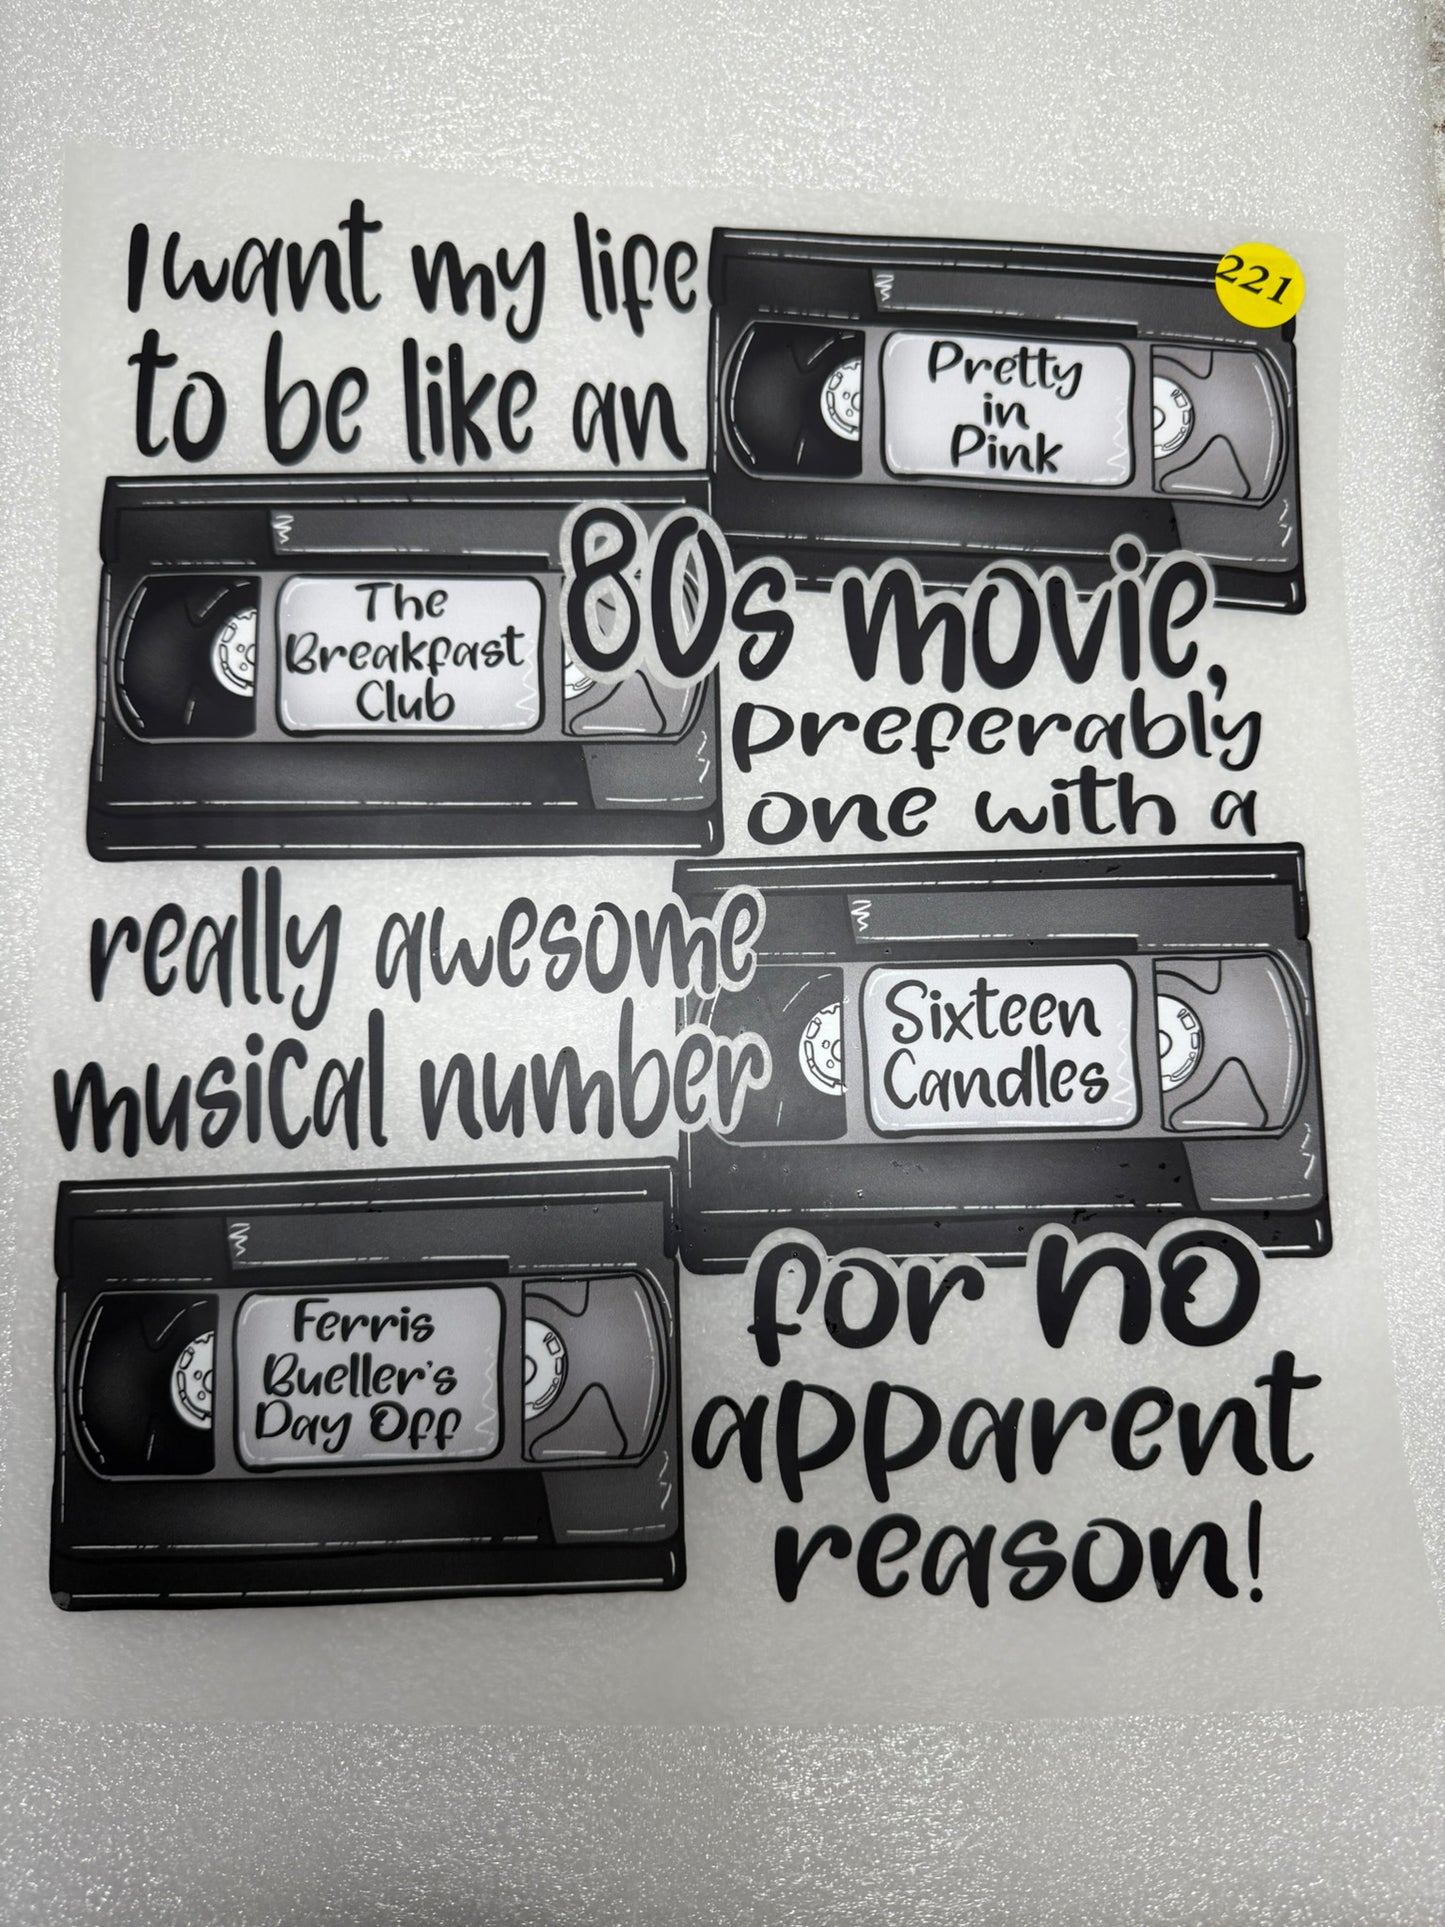 I want my life
to be like an
221
Pretty
in
Pink
The
Breakfast
Club
80s movie,
preferably
one with a
really awesome
musical number
Sixteen
Candles
Ferris
Bueller's
Day Off
for no
apparent
reason!